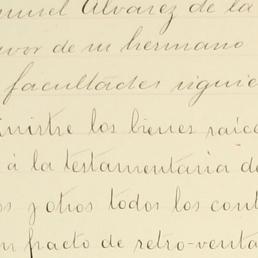 nuel Alvarez de la
avor de su hermano
facultades siguie
nistre los bienes raíce
á la testamentaria d
os y otros todos los cont
n pacto de retro-venta